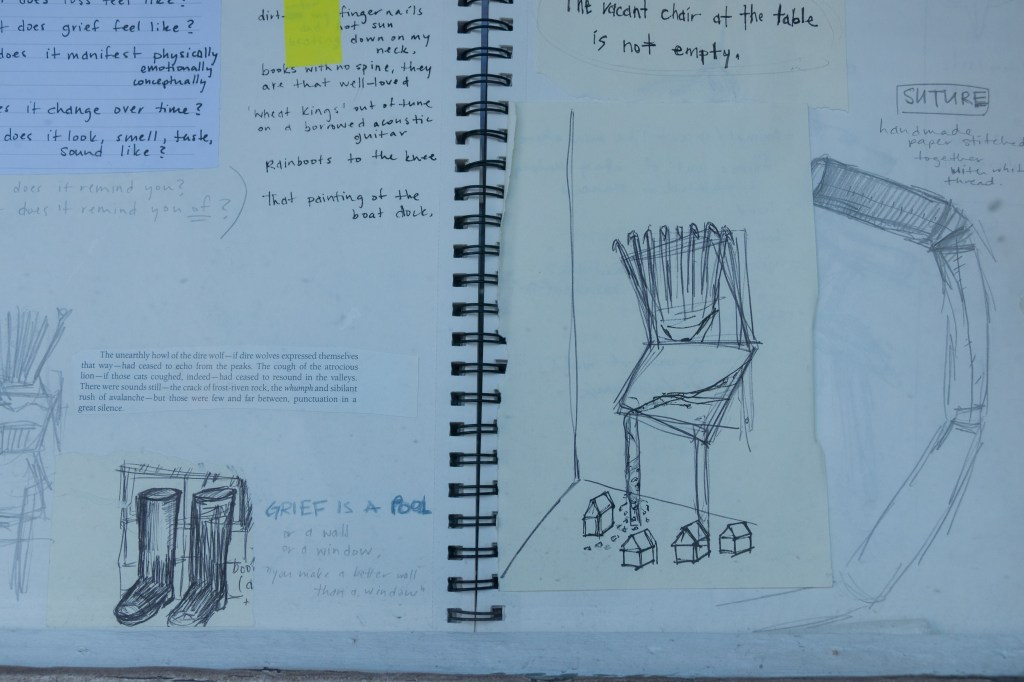 does loss feel like?
t does grief feel like?
does it manifest physically
emotionally
conceptually
es it change over time?
does it look, smell, taste,
sound like?
does it remind you?
does it remind you of?
dirt my fingernails
not sun
down on my
neck.
books with no spine, they
are that well-loved
'wheat kings' out of tune
on a borrowed acoustic
guitar
Rainboots to the knee
That painting of the
boat dock.
The unearthly howl of the dire wolf—if dire wolves expressed themselves
that way—had ceased to echo from the peaks. The cough of the atrocious
lion—if those cats coughed, indeed—had ceased to resound in the valleys.
There were sounds still—the crack of frost-riven rock, the whumph and sibilant
rush of avalanche—but those were few and far between, punctuation in a
great silence.
GRIEF IS A POOL
or a wall
or a window.
"you make a better wall
than a window"
The vacant chair at the table
is not empty.
SUTURE
handmade
paper stitched
together
with white
thread.